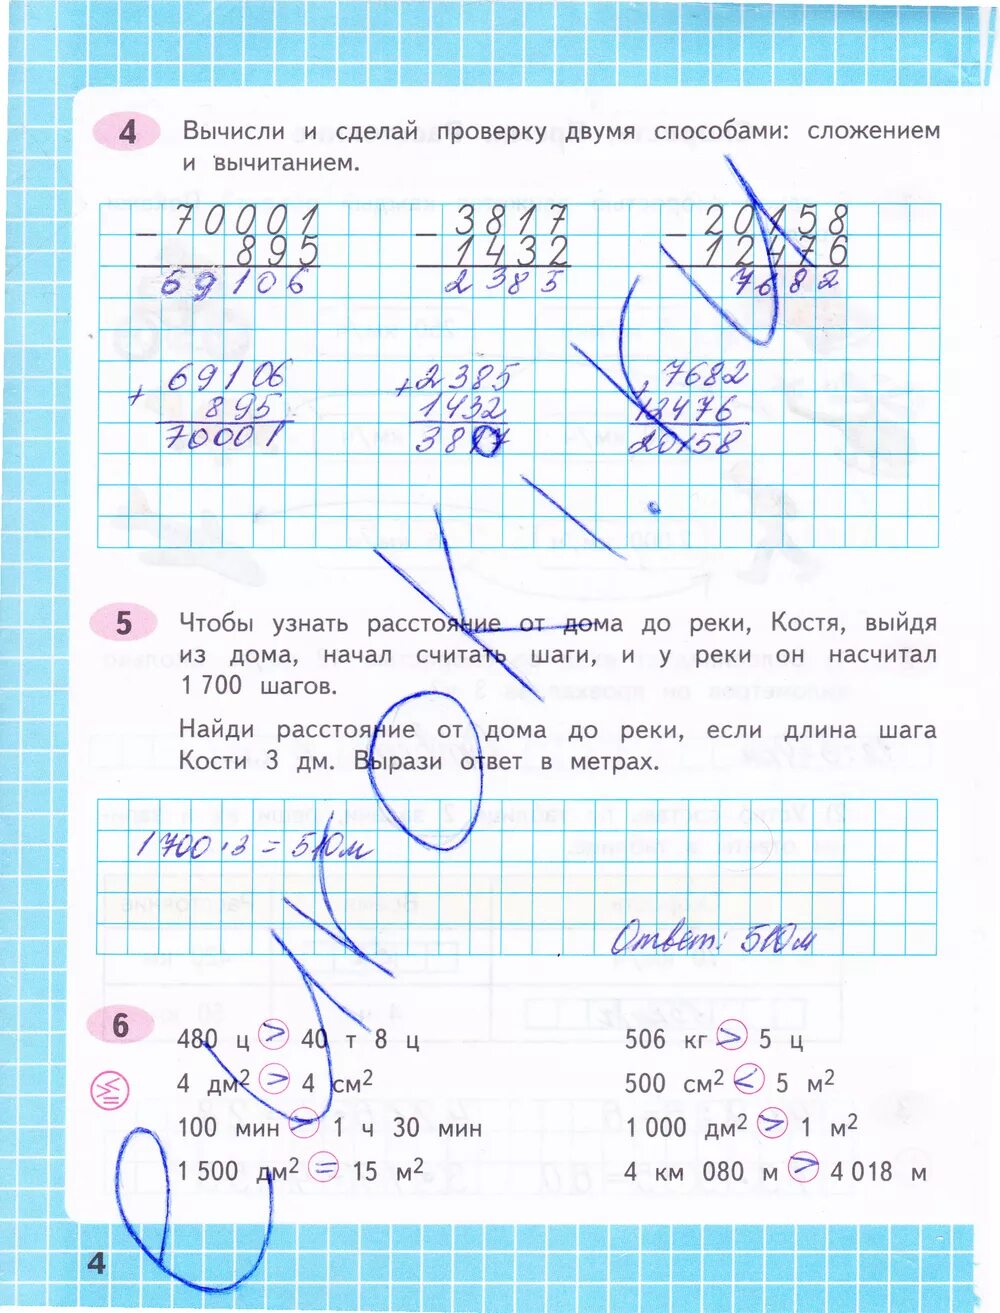 4 Вычисли и сделай проверку двумя способами: сложением
и вычитанием.
- 70001 - 3817 - 20158
895 1432 12476
69106 2385 7682
+ 69106 + 2385 + 7682
895 1432 12476
70001 3817 20158
5 Чтобы узнать расстояние от дома до реки, Костя, выйдя
из дома, начал считать шаги, и у реки он насчитал
1 700 шагов.
Найди расстояние от дома до реки, если длина шага
Кости 3 дм. Вырази ответ в метрах.
1700 · 3 = 510м
Ответ: 510м
6 480 ц > 40 т 8 ц 506 кг > 5 ц
4 дм² > 4 см² 500 см² < 5 м²
100 мин > 1 ч 30 мин 1 000 дм² > 1 м²
1 500 дм² = 15 м² 4 км 080 м > 4 018 м
4